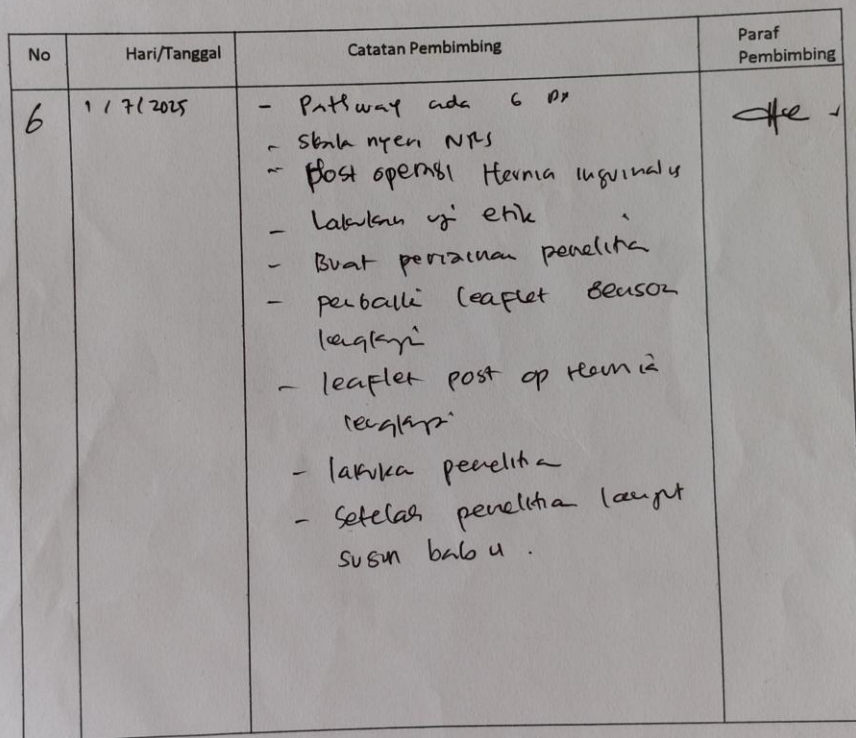 No Hari/Tanggal Catatan Pembimbing Paraf Pembimbing
6 1/7/2025 - Pathway ada 6 Dx
- Skala nyeri NRS
- post operasi Hernia inguinalis
- Lakukan uji etik
- Buat perizinan penelitia
- perbaiki leaflet Benson
lengkapi
- leaflet post op Hernia
lengkapi
- lakuka penelitia
- Setelah penelitia lanjut
susun bab